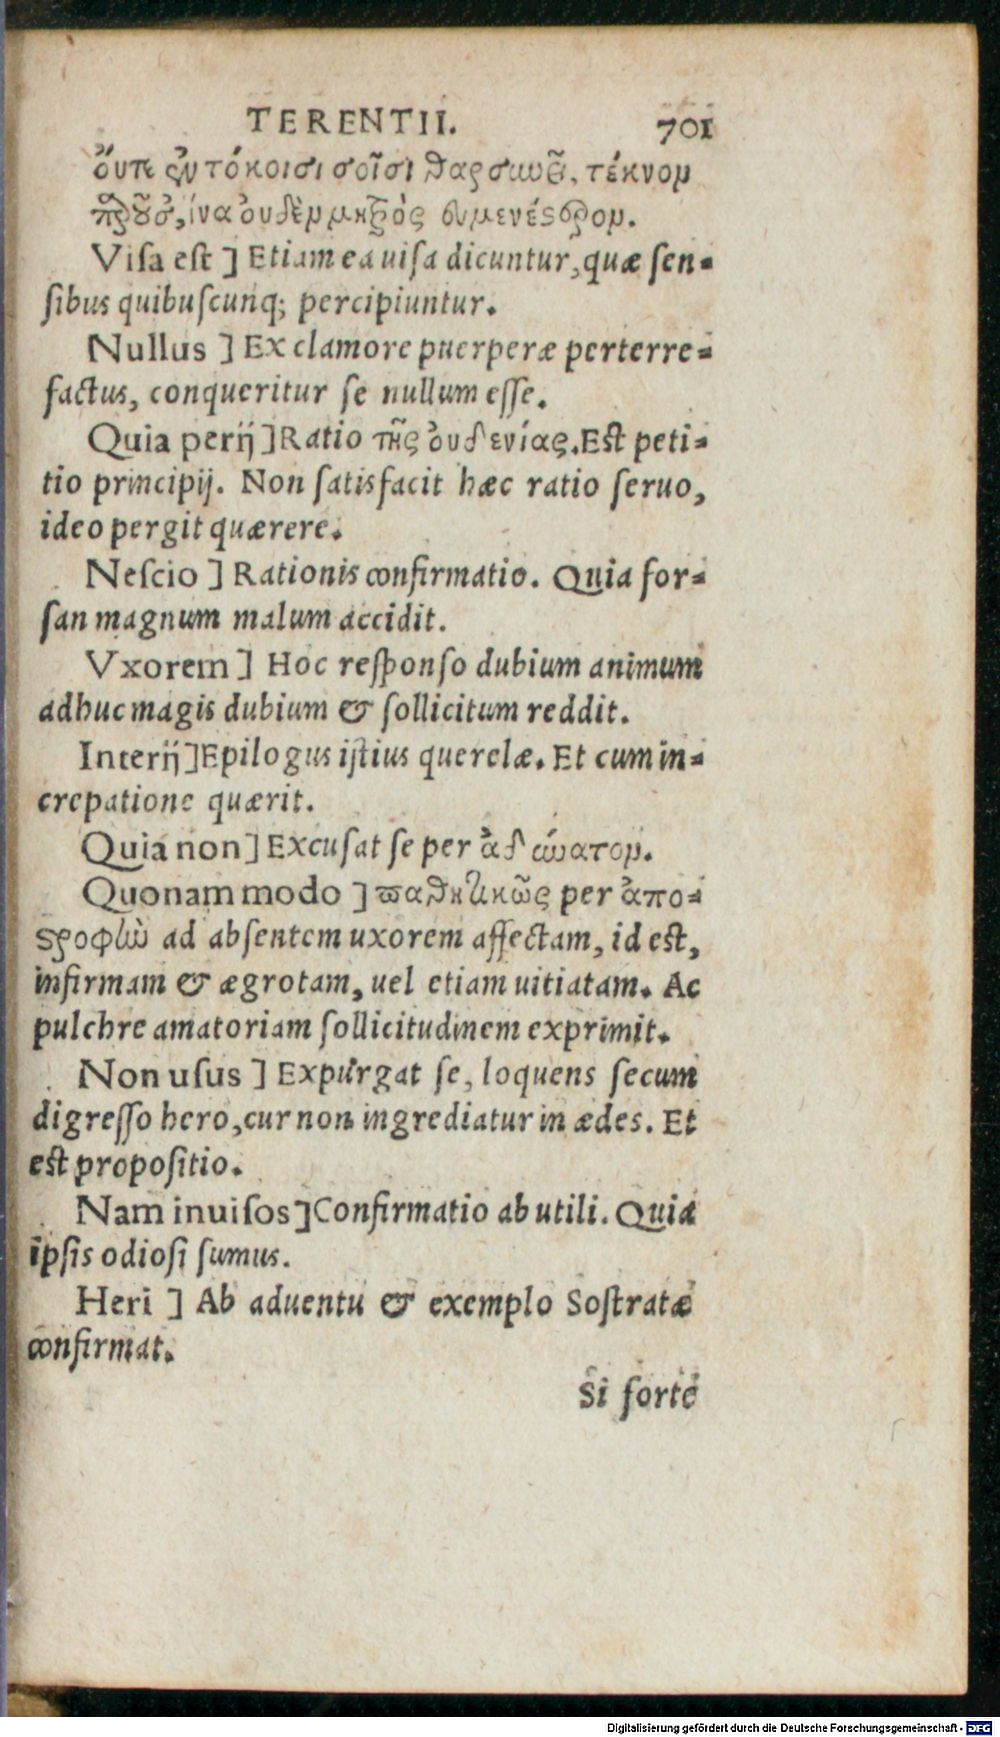 TERENTII. 701
ὄυπ ἐν τόκοισι σοῖσι θαρσυνεῖ, τέκνον
παροῦσ᾽, ἵνα ὀυδὲν μητρὸς ἐυμενέστερον.
Viſa eſt ] Etiam ea uiſa dicuntur, quæ ſen-
ſibus quibuſcunq; percipiuntur.
Nullus ] Ex clamore puerperæ perterre-
factus, conqueritur ſe nullum eſſe.
Quia perij ] Ratio τῆς ὀυδενίας. Eſt peti-
tio principij. Non ſatisfacit hæc ratio ſeruo,
ideo pergit quærere.
Neſcio ] Rationis confirmatio. Quia for-
ſan magnum malum accidit.
Vxorem ] Hoc reſponſo dubium animum
adhuc magis dubium & ſollicitum reddit.
Interij ] Epilogus iſtius querelæ. Et cum in-
crepatione quærit.
Quia non ] Excuſat ſe per ἀδύνατον.
Quonam modo ] παθητικῶς per ἀπο-
στροφὴν ad abſentem uxorem affectam, id eſt,
infirmam & ægrotam, uel etiam uitiatam. Ac
pulchre amatoriam ſollicitudinem exprimit.
Non uſus ] Expurgat ſe, loquens ſecum
digreſſo hero, cur non ingrediatur in ædes. Et
eſt propoſitio.
Nam inuiſos ] Confirmatio ab utili. Quia
ipſis odioſi ſumus.
Heri ] Ab aduentu & exemplo Soſtratæ
confirmat.
Si forte
Digitalisierung gefördert durch die Deutsche Forschungsgemeinschaft - DFG